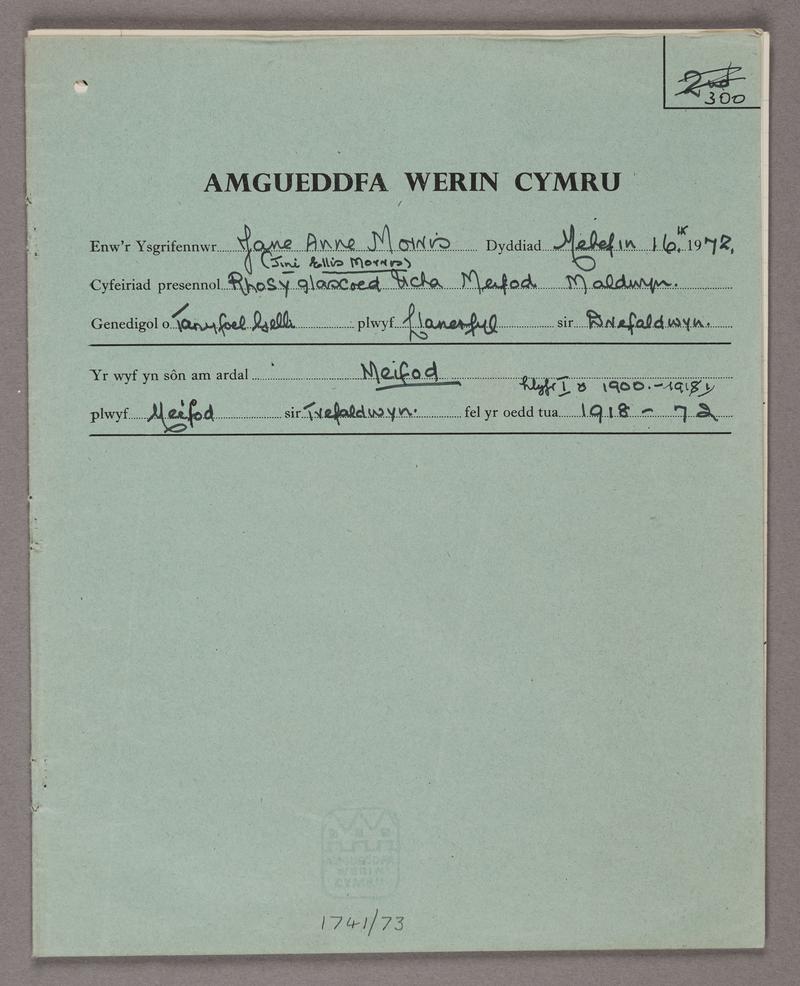 2nd
300
AMGUEDDFA WERIN CYMRU
Enw'r Ysgrifennwr Jane Anne Morris Dyddiad Mehefin 16.th 1972,
(Jini Ellis Morris)
Cyfeiriad presennol Rhosyglascoed Ucha Meifod Maldwyn.
Genedigol o Tanyfoel plwyf Llanerfyl sir Drefaldwyn.
Yr wyf yn sôn am ardal Meifod
Llyfr I o 1900.-1918
plwyf Meifod sir Trefaldwyn. fel yr oedd tua 1918 - 72
AMGUEDDFA
WERIN
CYMRU
1741/73